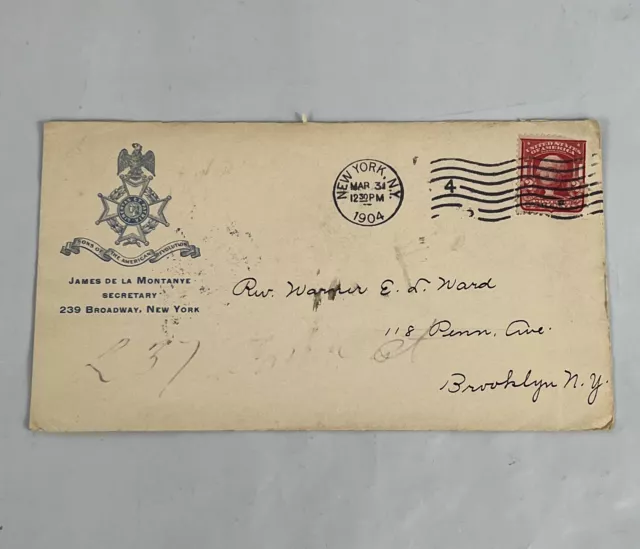 SONS OF THE AMERICAN REVOLUTION
JAMES DE LA MONTANYE
SECRETARY
239 BROADWAY, NEW YORK
NEW YORK, N.Y.
MAR 31
12 30 PM
1904
4
UNITED STATES
OF AMERICA
Rev. Warner E. L. Ward
118 Penn. Ave.
Brooklyn N.Y.
237